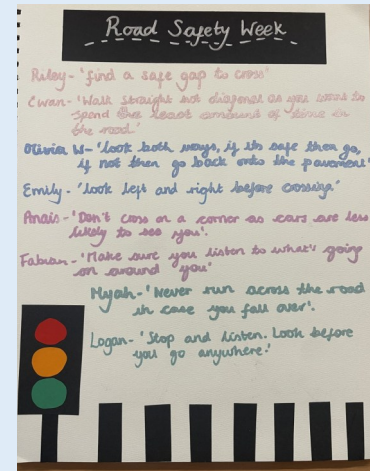 Road Safety Week
Riley - 'find a safe gap to cross'
Ewan - 'Walk straight not diagonal as you want to
spend the least amount of time in
the road'
Olivia W - 'look both ways, if its safe then go,
if not then go back onto the pavement'
Emily - 'look left and right before crossing'
Anais - 'Don't cross on a corner as cars are less
likely to see you'.
Fabian - 'Make sure you listen to what's going
on around you'
Myah - 'Never run across the road
in case you fall over'.
Logan - 'Stop and listen. Look before
you go anywhere.'